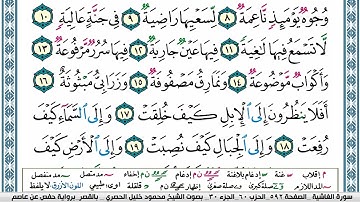 وُجُوهٌ يَوْمَئِذٍ نَّاعِمَةٌ ٨ لِّسَعْيِهَا رَاضِيَةٌ ٩ فِي جَنَّةٍ عَالِيَةٍ ١٠
لَّا تَسْمَعُ فِيهَا لَاغِيَةً ١١ فِيهَا عَيْنٌ جَارِيَةٌ ١٢ فِيهَا سُرُرٌ مَّرْفُوعَةٌ ١٣
وَأَكْوَابٌ مَّوْضُوعَةٌ ١٤ وَنَمَارِقُ مَصْفُوفَةٌ ١٥ وَزَرَابِيُّ مَبْثُوثَةٌ ١٦
أَفَلَا يَنظُرُونَ إِلَى الْإِبِلِ كَيْفَ خُلِقَتْ ١٧ وَإِلَى السَّمَاءِ كَيْفَ
رُفِعَتْ ١٨ وَإِلَى الْجِبَالِ كَيْفَ نُصِبَتْ ١٩ وَإِلَى الْأَرْضِ كَيْفَ
سورة الغاشية الصفحة ٥٩٢ الحزب ٦٠ الجزء ٣٠ بصوت الشيخ محمود خليل الحصري بالقصر برواية حفص عن عاصم